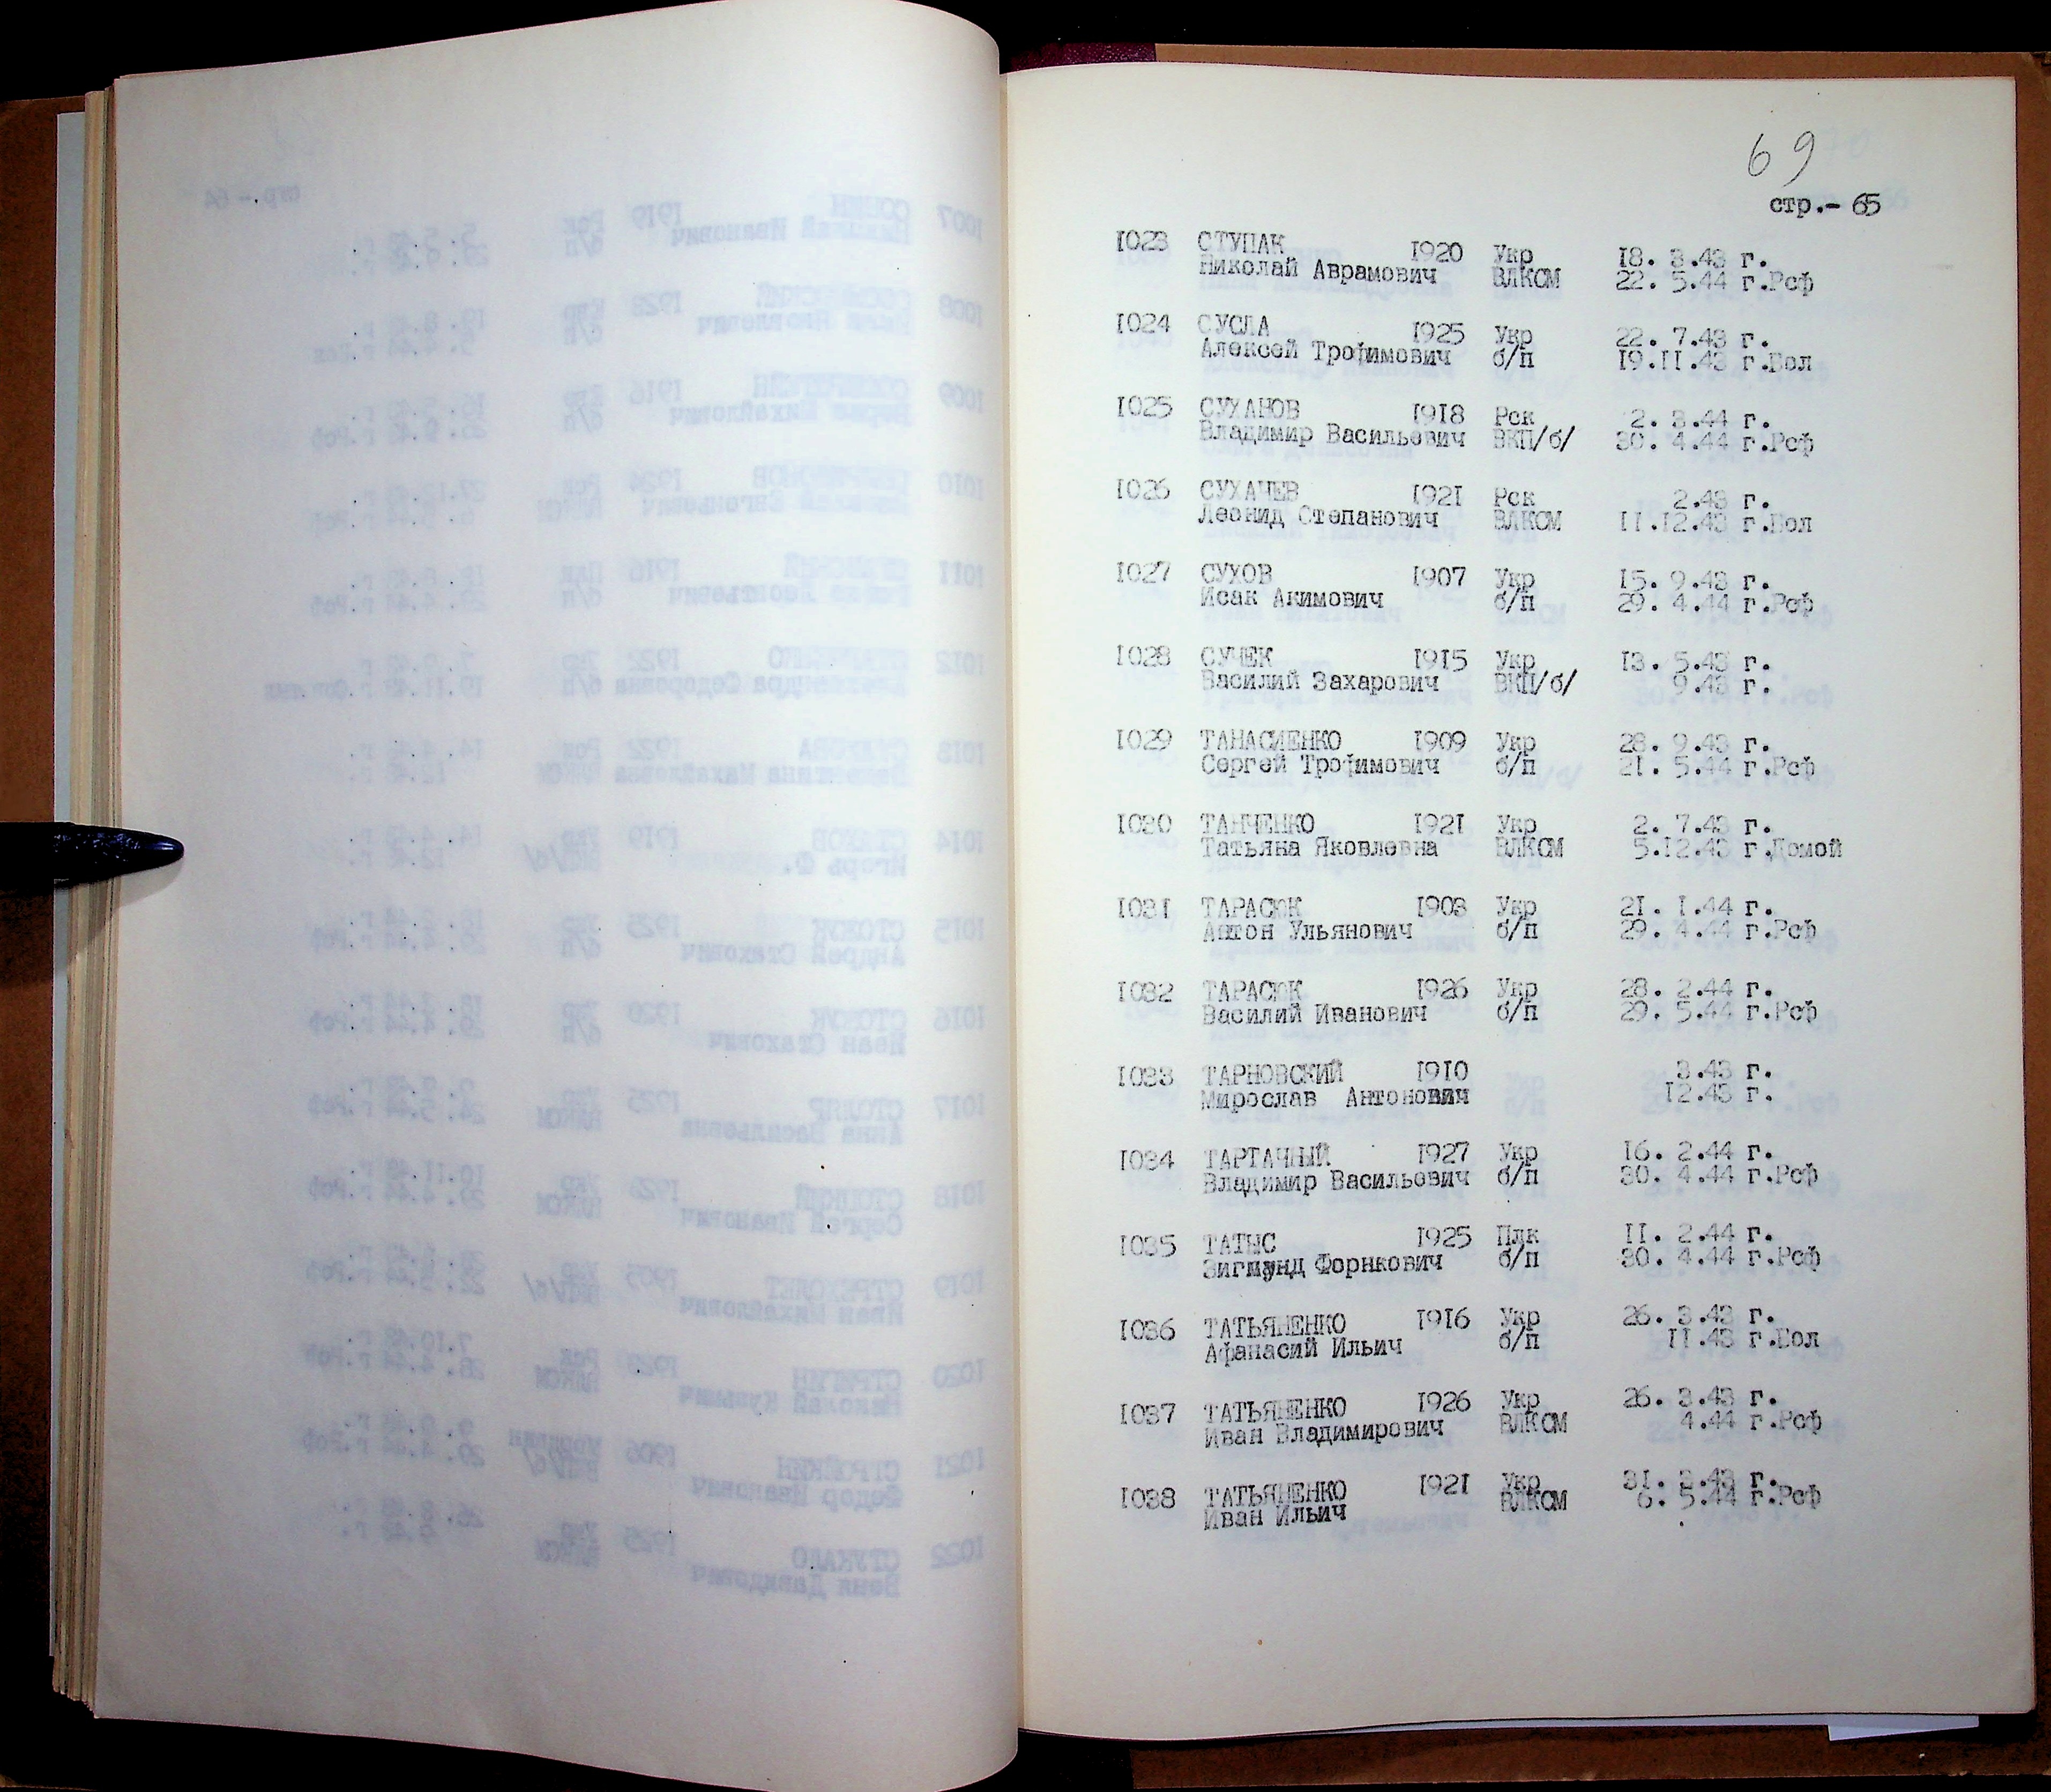 69
стр.- 65
1023 СТУПАК 1920 Укр 18. 3.43 г.
Николай Аврамович ВЛКСМ 22. 5.44 г.Рсф
1024 СУСЛА 1925 Укр 22. 7.43 г.
Алексей Трофимович б/п 19.11.43 г.Бол
1025 СУХАНОВ 1918 Рск 2. 3.44 г.
Владимир Васильевич ВКП/б/ 30. 4.44 г.Рсф
1026 СУХАЧЕВ 1921 Рск 2.43 г.
Леонид Степанович ВЛКСМ 11.12.43 г.Бол
1027 СУХОВ 1907 Укр 15. 9.43 г.
Исак Акимович б/п 29. 4.44 г.Рсф
1028 СУЧЕК 1915 Укр 13. 5.43 г.
Василий Захарович ВКП/б/ 9.43 г.
1029 ТАНАСИЕНКО 1909 Укр 28. 9.43 г.
Сергей Трофимович б/п 21. 5.44 г.Рсф
1030 ТАНЧЕНКО 1921 Укр 2. 7.43 г.
Татьяна Яковлевна ВЛКСМ 5.12.43 г.Домой
1031 ТАРАСЮК 1903 Укр 21. 1.44 г.
Антон Ульянович б/п 29. 4.44 г.Рсф
1032 ТАРАСЮК 1926 Укр 28. 2.44 г.
Василий Иванович б/п 29. 5.44 г.Рсф
1033 ТАРНОВСКИЙ 1910 3.43 г.
Мирослав Антонович 12.43 г.
1034 ТАРТАЧНЫЙ 1927 Укр 16. 2.44 г.
Владимир Васильевич б/п 30. 4.44 г.Рсф
1035 ТАТЫС 1925 Плк 11. 2.44 г.
Зигмунд Форнкович б/п 30. 4.44 г.Рсф
1036 ТАТЬЯНЕНКО 1916 Укр 26. 3.43 г.
Афанасий Ильич б/п 11.43 г.Бол
1037 ТАТЬЯНЕНКО 1926 Укр 26. 3.43 г.
Иван Владимирович ВЛКСМ 4.44 г.Рсф
1038 ТАТЬЯНЕНКО 1921 Укр 31. 3.43 г.
Иван Ильич ВЛКСМ 6. 5.44 г.Рсф